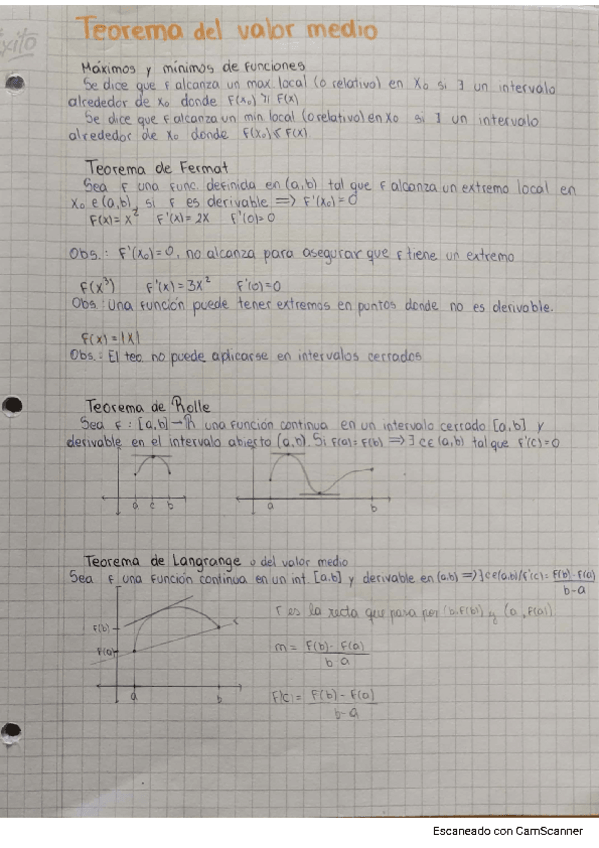 éxito
Teorema del valor medio
Máximos y mínimos de funciones
Se dice que f alcanza un max local (o relativo) en X₀ si ∃ un intervalo
alrededor de x₀ donde F(x₀) ≥ F(x)
Se dice que f alcanza un min local (o relativo) en X₀ si ∃ un intervalo
alrededor de x₀ donde F(x₀) ≤ F(x)
Teorema de Fermat
Sea f una func. definida en (a,b) tal que f alcanza un extremo local en
X₀ e (a,b), si f es derivable => F'(x₀) = 0
F(x) = x² F'(x) = 2x F'(0) = 0
Obs.: F'(x₀)=0, no alcanza para asegurar que f tiene un extremo
F(x³) F'(x) = 3x² F'(0)=0
Obs: Una función puede tener extremos en puntos donde no es derivable.
F(x) = |x|
Obs.: El teo. no puede aplicarse en intervalos cerrados
Teorema de Rolle
Sea f: [a,b]→R una función continua en un intervalo cerrado [a,b] y
derivable en el intervalo abierto (a,b). Si f(a)=f(b) => ∃ c∈(a,b) tal que f'(c)=0
a c b
a b
Teorema de Langrange o del valor medio
Sea f una función continua en un int. [a,b] y derivable en (a,b) => ∃ c∈(a,b)/f'(c)= F(b)-F(a)
b-a
r es la recta que pasa por (b,F(b)) y (a,F(a))
F(b)
r
F(a)
m = F(b)-F(a)
b-a
a b
F'(c) = F(b)-F(a)
b-a
Escaneado con CamScanner